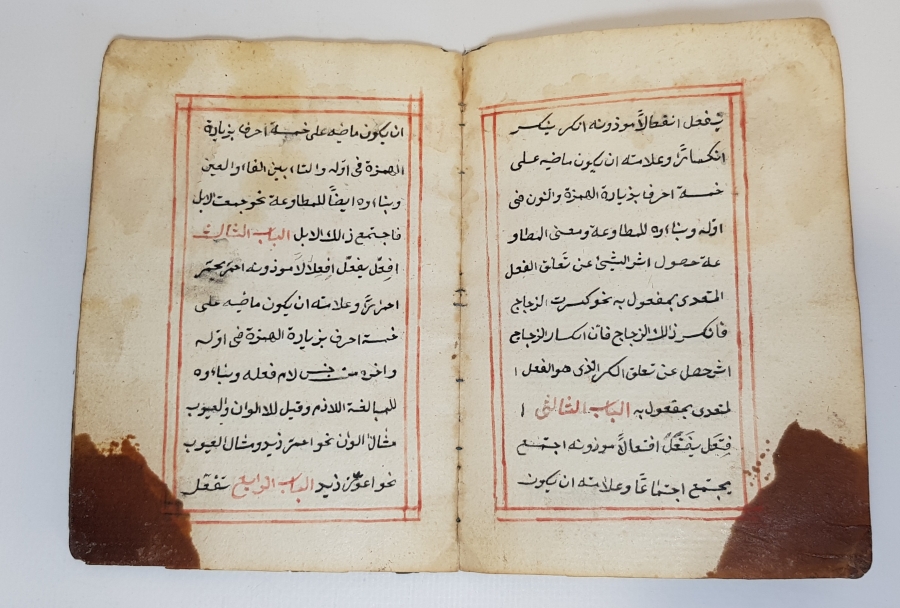 ينفعل انفعالاً موزونه انكسر ينكسر
انكساراً وعلامته ان يكون ماضيه على
خمسة احرف بزيادة الهمزة والنون فى
اوله وبناءوه للمطاوعة ومعنى المطاو
عة حصول اثر الشيئ عن تعلق الفعل
المتعدى بمفعول به نحو كسرت الزجاج
فانكسر ذلك الزجاج فان انكسار الزجاج
اثر حصل عن تعلق الكسر الذى هو الفعل ا
لمتعدى بمفعول به الباب الثانى ا
فتعل يفتعل افتعالاً موزونه اجتمع
يجتمع اجتماعاً وعلامته ان يكون
ان يكون ماضيه على خمسة احرف بزيادة
الهمزة فى اوله والتاء بين الفاء والعين
وبناءوه ايضاً للمطاوعة نحو جمعت الابل
فاجتمع ذلك الابل الباب الثالث
افعلّ يفعلّ افعلالاً موزونه احمرّ يحمرّ
احمراراً وعلامته ان يكون ماضيه على
خمسة احرف بزيادة الهمزة فى اوله
واخره من جنس لام فعله وبناءوه
للمبالغة اللازم وقيل للالوان والعيوب
مثال الوان نحو احمرّ زيد ومثال العيوب
نحو اعورّ زيد الباب الرابع تفعّل